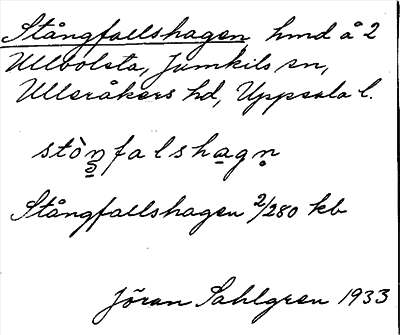 Stångfallshagen hmd å 2
Ullbolsta, Jumkils sn,
Ulleråkers hd, Uppsala l.
stòn̥falshagn̥
Stångfallshagen 2/280 kb
Jöran Sahlgren 1933